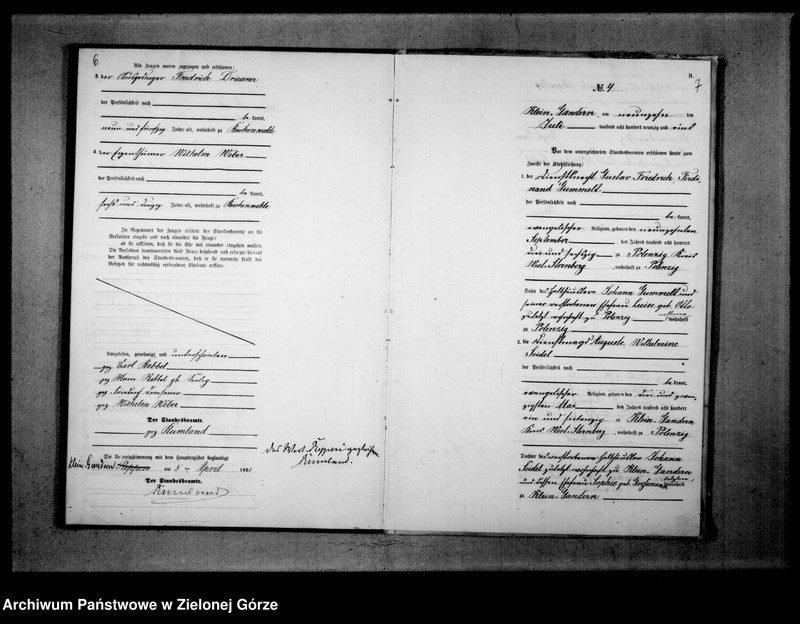 6
Als Zeugen waren zugezogen und erschienen:
3. der Friedrich Driesner
der Persönlichkeit nach
be kannt,
neun und fünfzig Jahre alt, wohnhaft zu Reichenwalde
4. der Eigenthümer Wilhelm Weber
der Persönlichkeit nach
be kannt,
sechs und Jahre alt, wohnhaft zu Reichenwalde
In Gegenwart der Zeugen richtete der Standesbeamte an die
Verlobten einzeln und nach einander die Frage:
ob sie erklären, daß sie die Ehe mit einander eingehen wollen.
Die Verlobten beantworteten diese Frage bejahend und erfolgte hierauf
der Ausspruch des Standesbeamten, daß er sie nunmehr kraft des
Gesetzes für rechtmäßig verbundene Eheleute erkläre.
Vorgelesen, genehmigt und unterschrieben
gez. Carl Rabbel
gez. Rabbel geb.
gez. Friedrich Driesner
gez. Wilhelm Weber
Der Standesbeamte.
gez. Rumland
Die Uebereinstimmung mit dem Hauptregister beglaubigt
Klein Gandern am 5ten April 1891
Der Standesbeamte.
Rumland
Das Wort gestrichen.
Rumland.
B.
7
№ 4
Klein Gandern am neunzehn ten
Juli tausend acht hundert neunzig und eins
Vor dem unterzeichneten Standesbeamten erschienen heute zum
Zwecke der Eheschließung:
1. der Dienstknecht Gustav Friedrich Ferdi-
nand Gummelt
der Persönlichkeit nach
be kannt,
evangelischer Religion, geboren den neunzehnten
September des Jahres tausend acht hundert
drei und sechszig zu Polenzig Kreis
West-Sternberg, wohnhaft zu Polenzig
Sohn des Halbhüfners Johann Gummelt und
seiner verstorbenen Ehefrau Luise geb. Otto
zuletzt wohnhaft zu Polenzig wohnhaft
zu Polenzig
2. die Dienstmagd Auguste Wilhelmine
Seidel
der Persönlichkeit nach
be kannt,
evangelischer Religion, geboren den drei und zwan-
zigsten Mai des Jahres tausend acht hundert
ein und siebenzig zu Klein-Gandern
Kreis West-Sternberg, wohnhaft zu Polenzig
Tochter des verstorbenen Halbhüfners Johann
Seidel zuletzt wohnhaft zu Klein-Gandern
und dessen Ehefrau Sophie geb. Großmann wohnhaft
zu Klein-Gandern
Archiwum Państwowe w Zielonej Górze